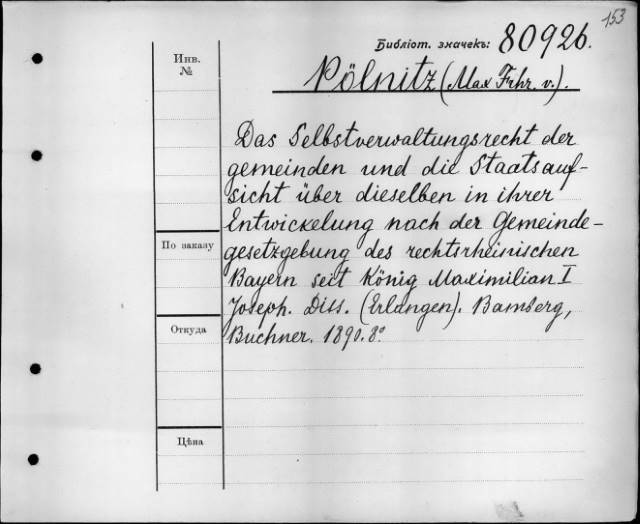 153
Библіот. значекъ: 80926.
Инв.
№
Pölnitz (Max Frhr. v.).
Das Selbstverwaltungsrecht der
gemeinden und die Staatsauf-
sicht über dieselben in ihrer
Entwickelung nach der Gemeinde-
gesetzgebung des rechtsrheinischen
Bayern seit König Maximilian I
Joseph. Diss. (Erlangen). Bamberg,
Buchner. 1890. 8º.
По заказу
Откуда
Цѣна